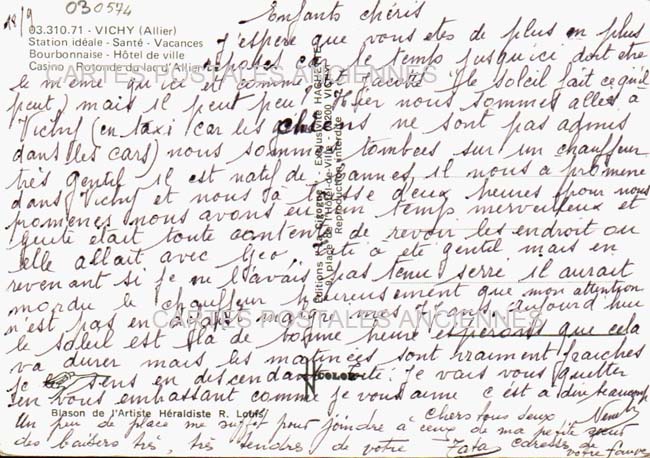 18/9
030574
03.310.71 - VICHY (Allier)
Station idéale - Santé - Vacances
Bourbonnaise - Hôtel de ville
Casino - Rotonde du lac d'Allier
Enfants chéris
J'espère que vous êtes de plus en plus
reposés car le temps jusqu'ici doit être
le même qu'ici est comme Le soleil fait ce qu'il
peut, mais il peut peu. Hier nous sommes allés à
Vichy (en taxi car les chiens ne sont pas admis
dans les cars) nous sommes tombées sur un chauffeur
très gentil il est natif de Roannes, il nous a promené
dans Vichy et nous a laissé deux heures pour nous
promener nous avons eu un temps merveilleux et
était toute contente de revoir les endroit ou
elle allait avec Geo. a été gentil mais en
revenant si je ne l'avais pas tenu serré il aurait
mordu le chauffeur heureusement que mon attention
n'est pas en malgré mes aujourd hui
le soleil est là de bonne heure espérons que cela
va durer mais les matinées sont vraiment fraîches
je sens en descendant je vais vous quitter
en vous embrassant comme je vous aime c'est à dire beaucoup
Chers tous deux
Un peu de place me suffit pour joindre à ceux de ma petite sœur
des baisers très, très tendres de votre Tata caresses de
votre
Blason de l'Artiste Héraldiste R. Louis
Editions - Exclusivité HACHETTE
9, place de l'Hôtel-de-Ville - 03200 VICHY
Reproduction interdite
COLOR
CARTES POSTALES ANCIENNES
CARTES POSTALES ANCIENNES